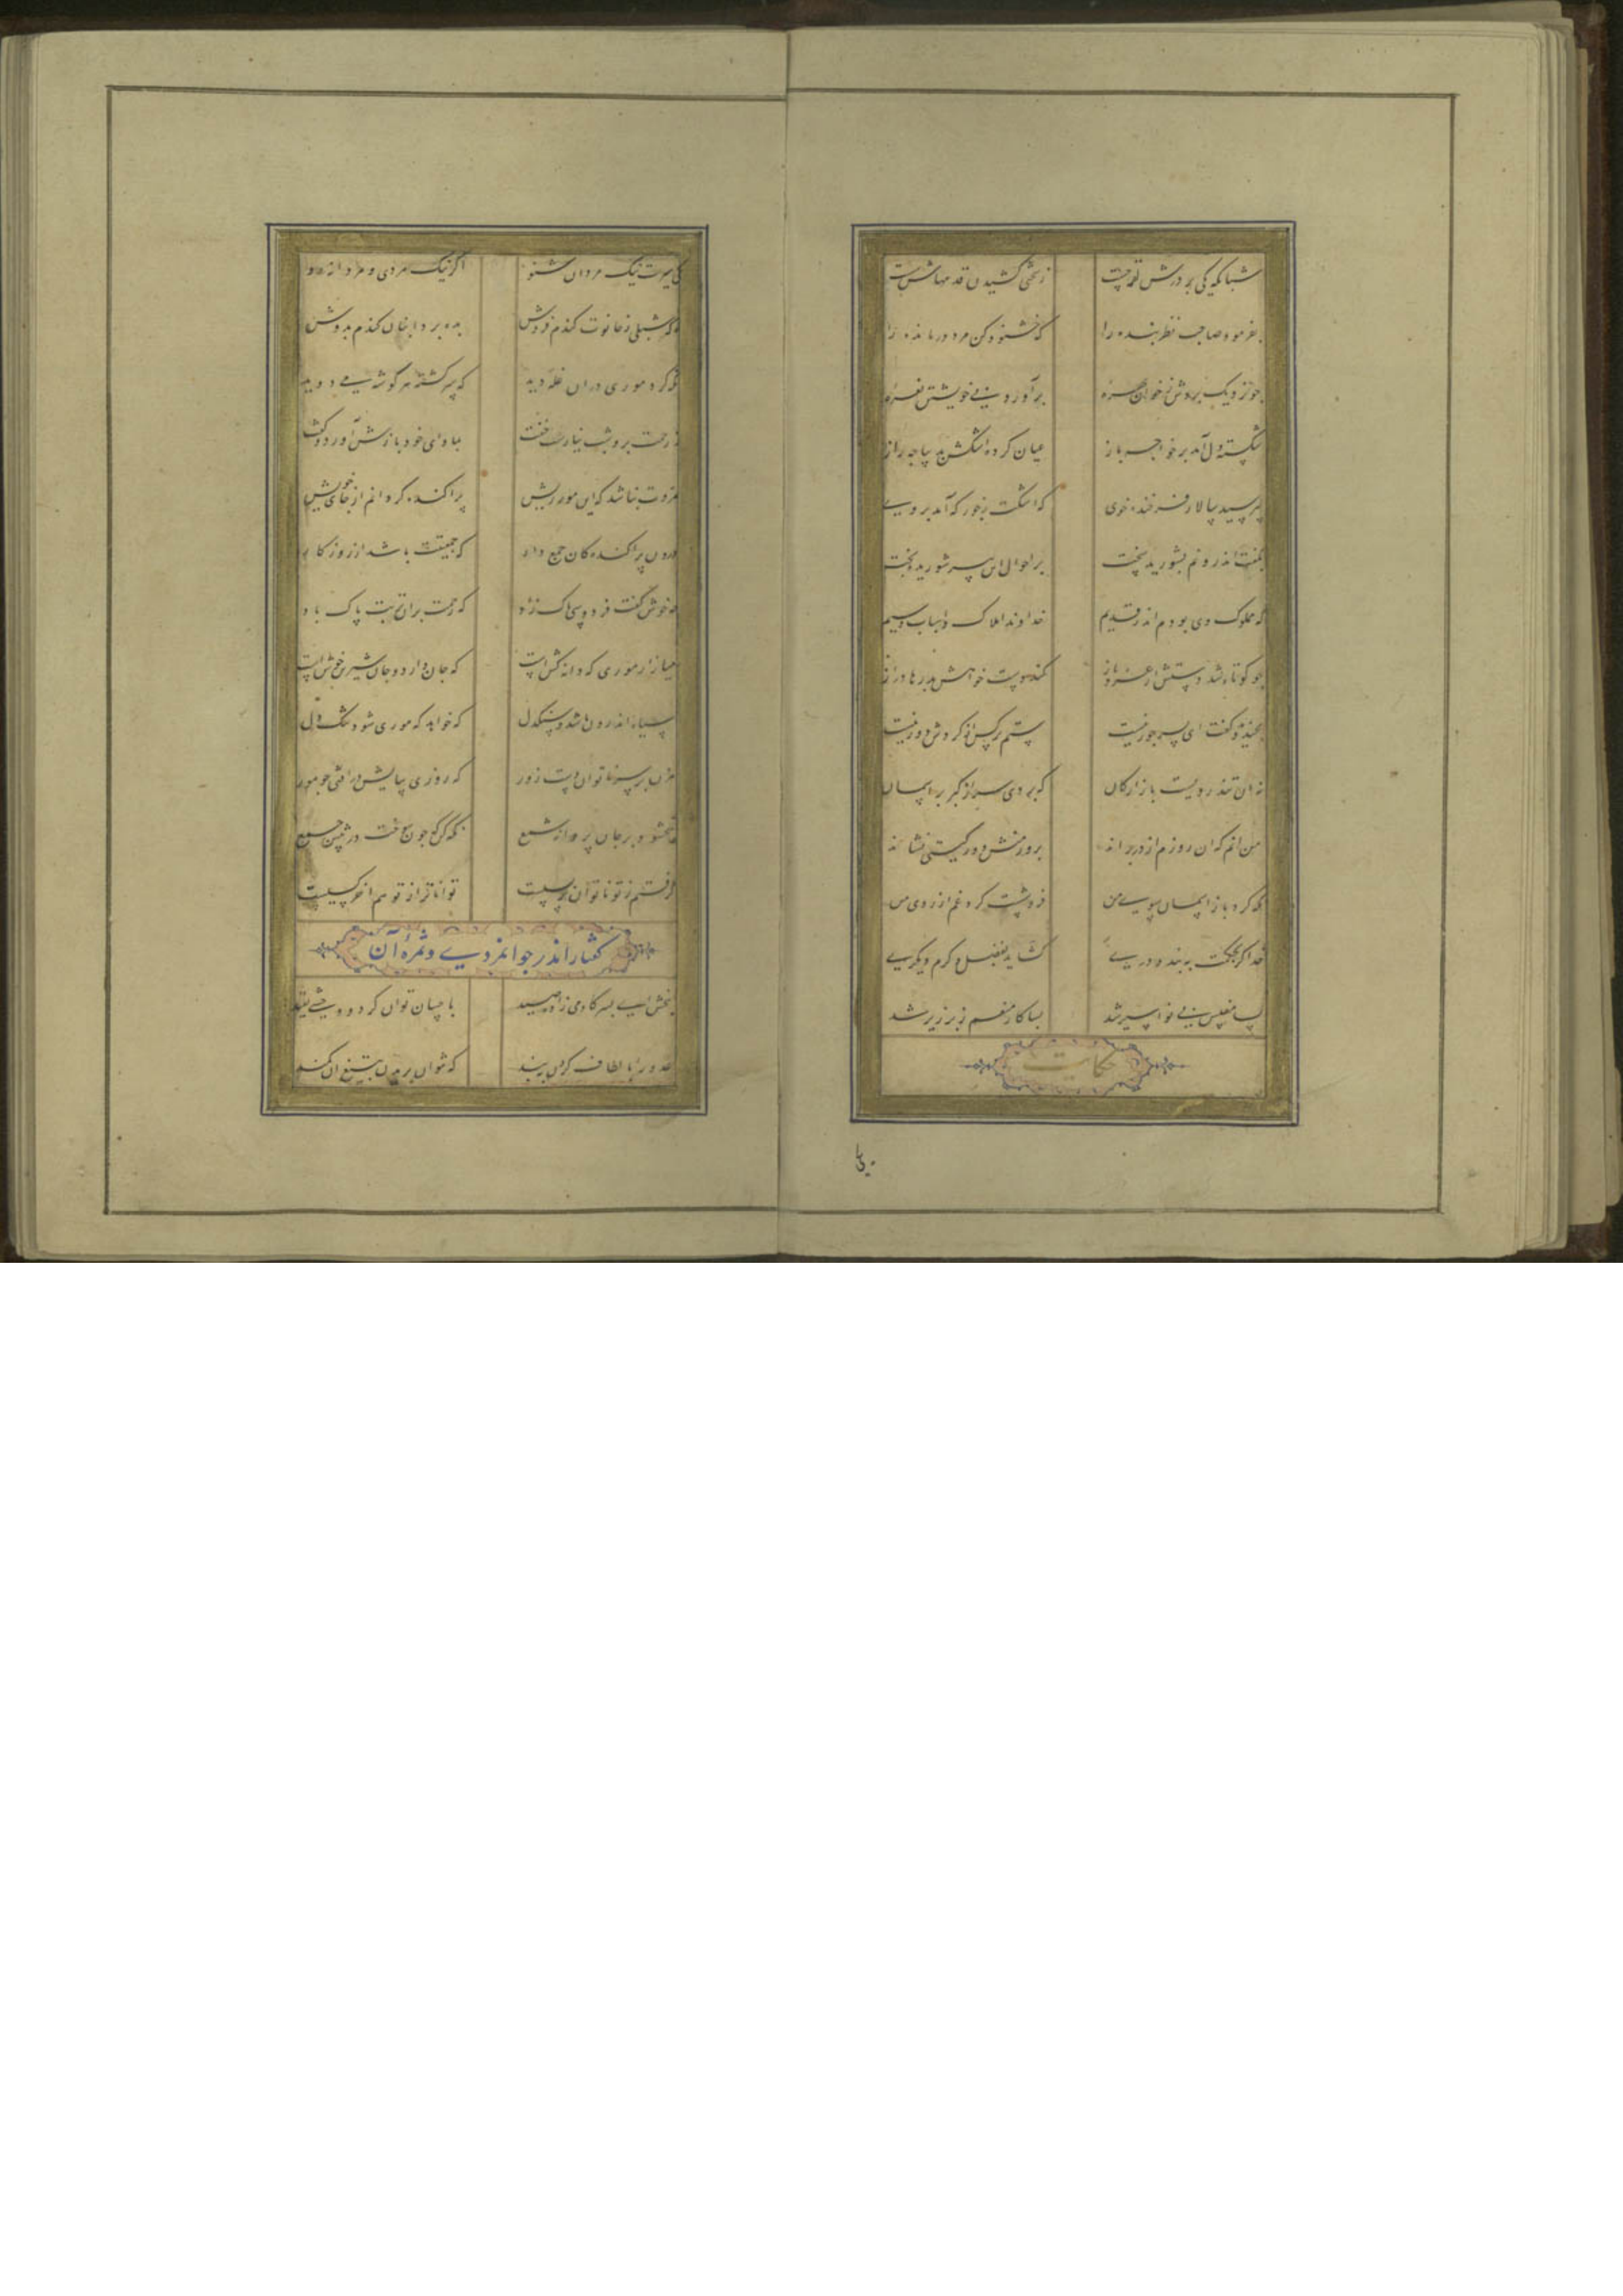 شبانگه یکی بر درش لقمه جست ز سختی کشیدن قدمهاش سست
بفرمود صاحب نظر بنده را که خشنود کن مرد درمانده را
چو نزدیک بردش ز خوان بهره برآورد بی خویشتن نعره
شکسته دل آمد بر خواجه باز عیان کرده اشکش بدیباجه راز
بپرسید سالار فرخنده خوی که اشکت ز جور که آمد بروی
بگفت اندرونم بشورید سخت بر احوال این پیر شوریده بخت
که مملوک وی بودم اندر قدیم خداوند املاک و اسباب و سیم
چو کوتاه شد دستش از عز و ناز کند دست خواهش بدرها دراز
بخندید و گفت ای پسر جور نیست ستم بر کس از گردش دور نیست
نه آن تند رویست بازارگان که بردی سر از کبر بر آسمان
من آنم که آن روزم از در براند بروز منش دور گیتی نشاند
نگه کرد باز آسمان سوی من فروشست گرد غم از روی من
خدا گر بحکمت ببندد دری گشاید بفضل و کرم دیگری
بسا مفلس بی نوا سیر شد بسا کار منعم زبر زیر شد
حکایت
یکی سیرت نیک مردان شنو اگر نیک مردی و مردانه رو
که شبلی ز حانوت گندم فروش بده برد انبان گندم بدوش
نگه کرد موری در آن غله دید که سرگشته هر گوشه می دوید
ز رحمت برو شب نیارست خفت بماوای خود بازش آورد و گفت
مروت نباشد که این مور ریش پراکنده گردانم از جای خویش
درون پراکندگان جمع دار که جمعیتت باشد از روزگار
چه خوش گفت فردوسی پاک زاد که رحمت بران تربت پاک باد
میازار موری که دانه کش است که جان دارد و جان شیرین خوش است
سیاه اندرون باشد و سنگدل که خواهد که موری شود تنگ دل
مزن بر سر ناتوان دست زور که روزی بپایش در افتی چو مور
نبخشود بر جان پروانه شمع نگه کن که چون سوخت در پیش جمع
گرفتم ز تو ناتوان تر بسیست تواناتر از تو هم آخر کسیست
گفتار اندر جوانمردی و ثمره آن
ببخش ای پسر کادمی زاده صید باحسان توان کرد و وحشی بقید
عدو را بالطاف گردن ببند که نتوان بریدن بتیغ آن کمند